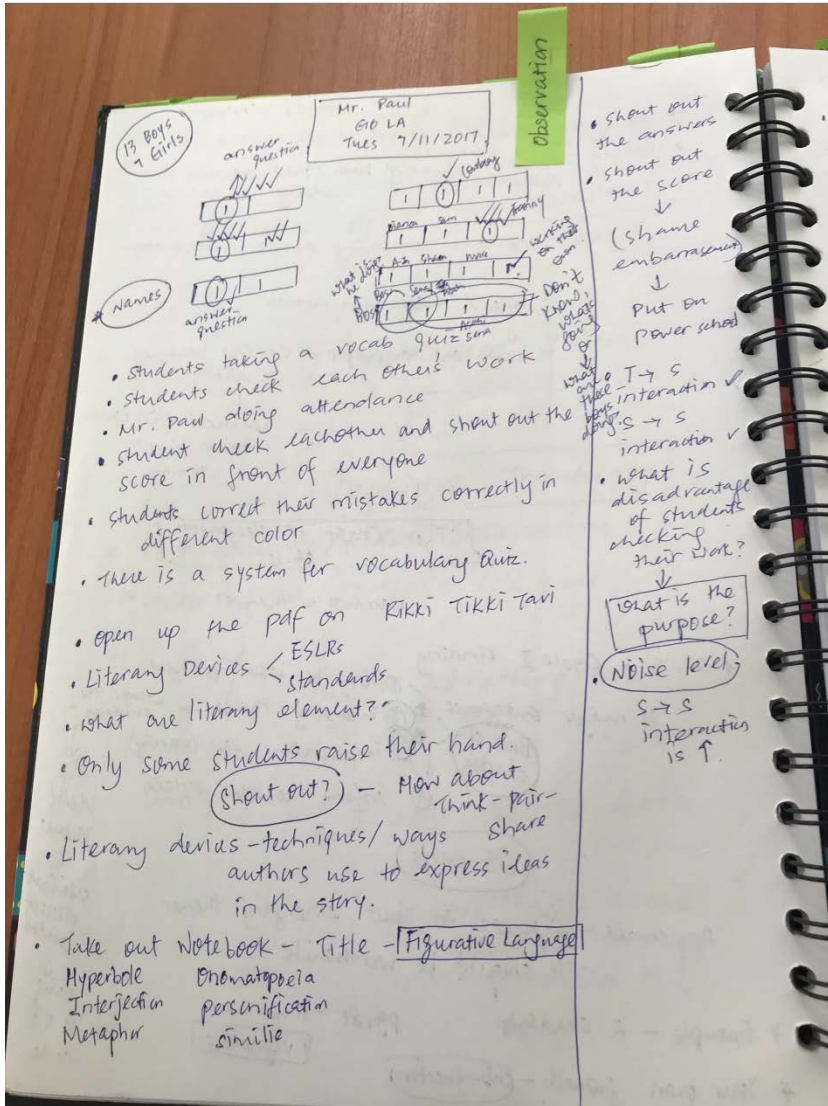 Observation
13 Boys
7 Girls
Mr. Paul
LA
Tues 7/11/2017
answer
question
answer
question
* Names
working
on their
own
what is
he doing?
Don't
know
what's
going
what
are
these
boys
doing?
• Students taking a vocab quiz
• Students check each other's work
• Mr. Paul doing attendance
• Student check eachother and shout out the
score in front of everyone
• Students correct their mistakes correctly in
different color
• There is a system for vocabulary Quiz.
• open up the pdf on Rikki Tikki Tavi
• Literary Devices < ESLRs
standards
• what are literary element?
• Only some students raise their hand.
Shout out? - How about
Think-pair-
share
• Literary devices - techniques/ways
authors use to express ideas
in the story.
• Take out Notebook - Title - Figurative Language
Hyperbole Onomatopoeia
Interjection personification
Metaphor similie.
• shout out
the answers
• shout out
the score
↓
(shame
embarrasement)
↓
Put on
power school
• T → S
interaction ✓
• S → S
interaction ✓
• what is
disadvantage
of students
checking
their work?
↓
what is the
purpose?
• Noise level:
S → S
interaction
is ↑